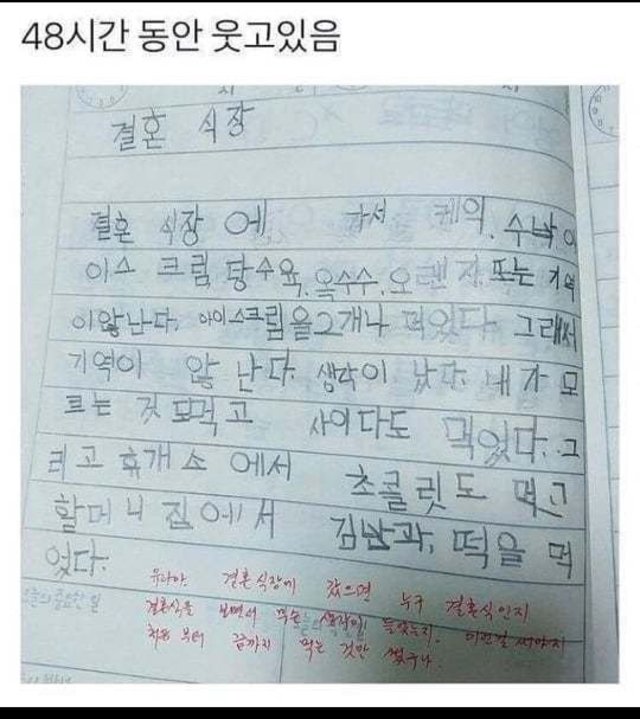 48시간 동안 웃고있음
결혼 식장
결혼 식장 에, 가서 케익, 수박 아
이스 크림 탕수육, 옥수수, 오렌지, 또는 기억
이않난다. 아이스크림을2개나 먹었다. 그래서
기역이 않 난다. 생각이 났다. 내가 모
르는 것 도먹고 사이다도 먹었다. 그
리고 휴개소 에서 초콜릿도 먹고
할머니 집에서 김밥과, 떡을 먹
었다.
유라야 결혼식장에 갔으면 누구 결혼식인지
결혼식을 보면서 무슨 생각이 들었는지. 이런걸 써야지
처음 부터 끝까지 먹는 것만 썼구나.